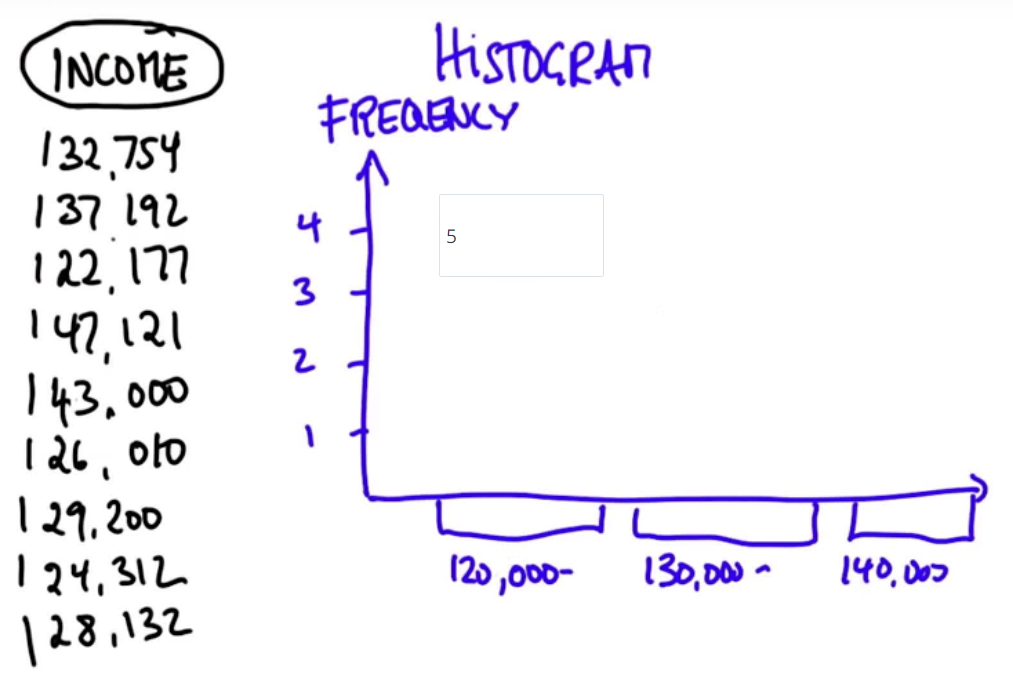 INCOME
132,754
137 192
122,177
147,121
143,000
126,010
129,200
124,312
128,132
HISTOGRAM
FREQENCY
4
5
3
2
1
120,000-
130,000 -
140,000